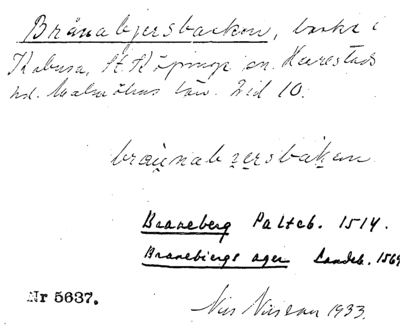 Brånabjersbacken, backe i
Kabusa, St. Köpinge sn. Herrestads
hd. Malmöhus län. Zid 10.
braunabzersbakan
Braaneberg Palteb. 1514.
Branebiergs ager Landeb. 1569
Nr 5637.
Nils Nilsson 1933.